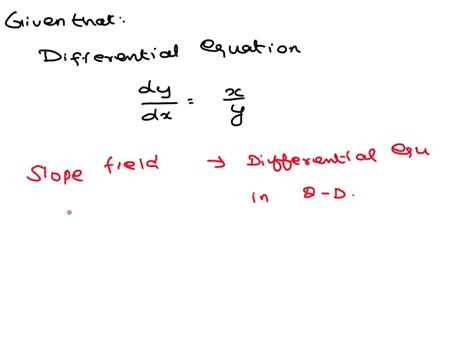 Given that:
Differential equation
dy/dx = x/y
Slope field → Differential equ
in 2-D.